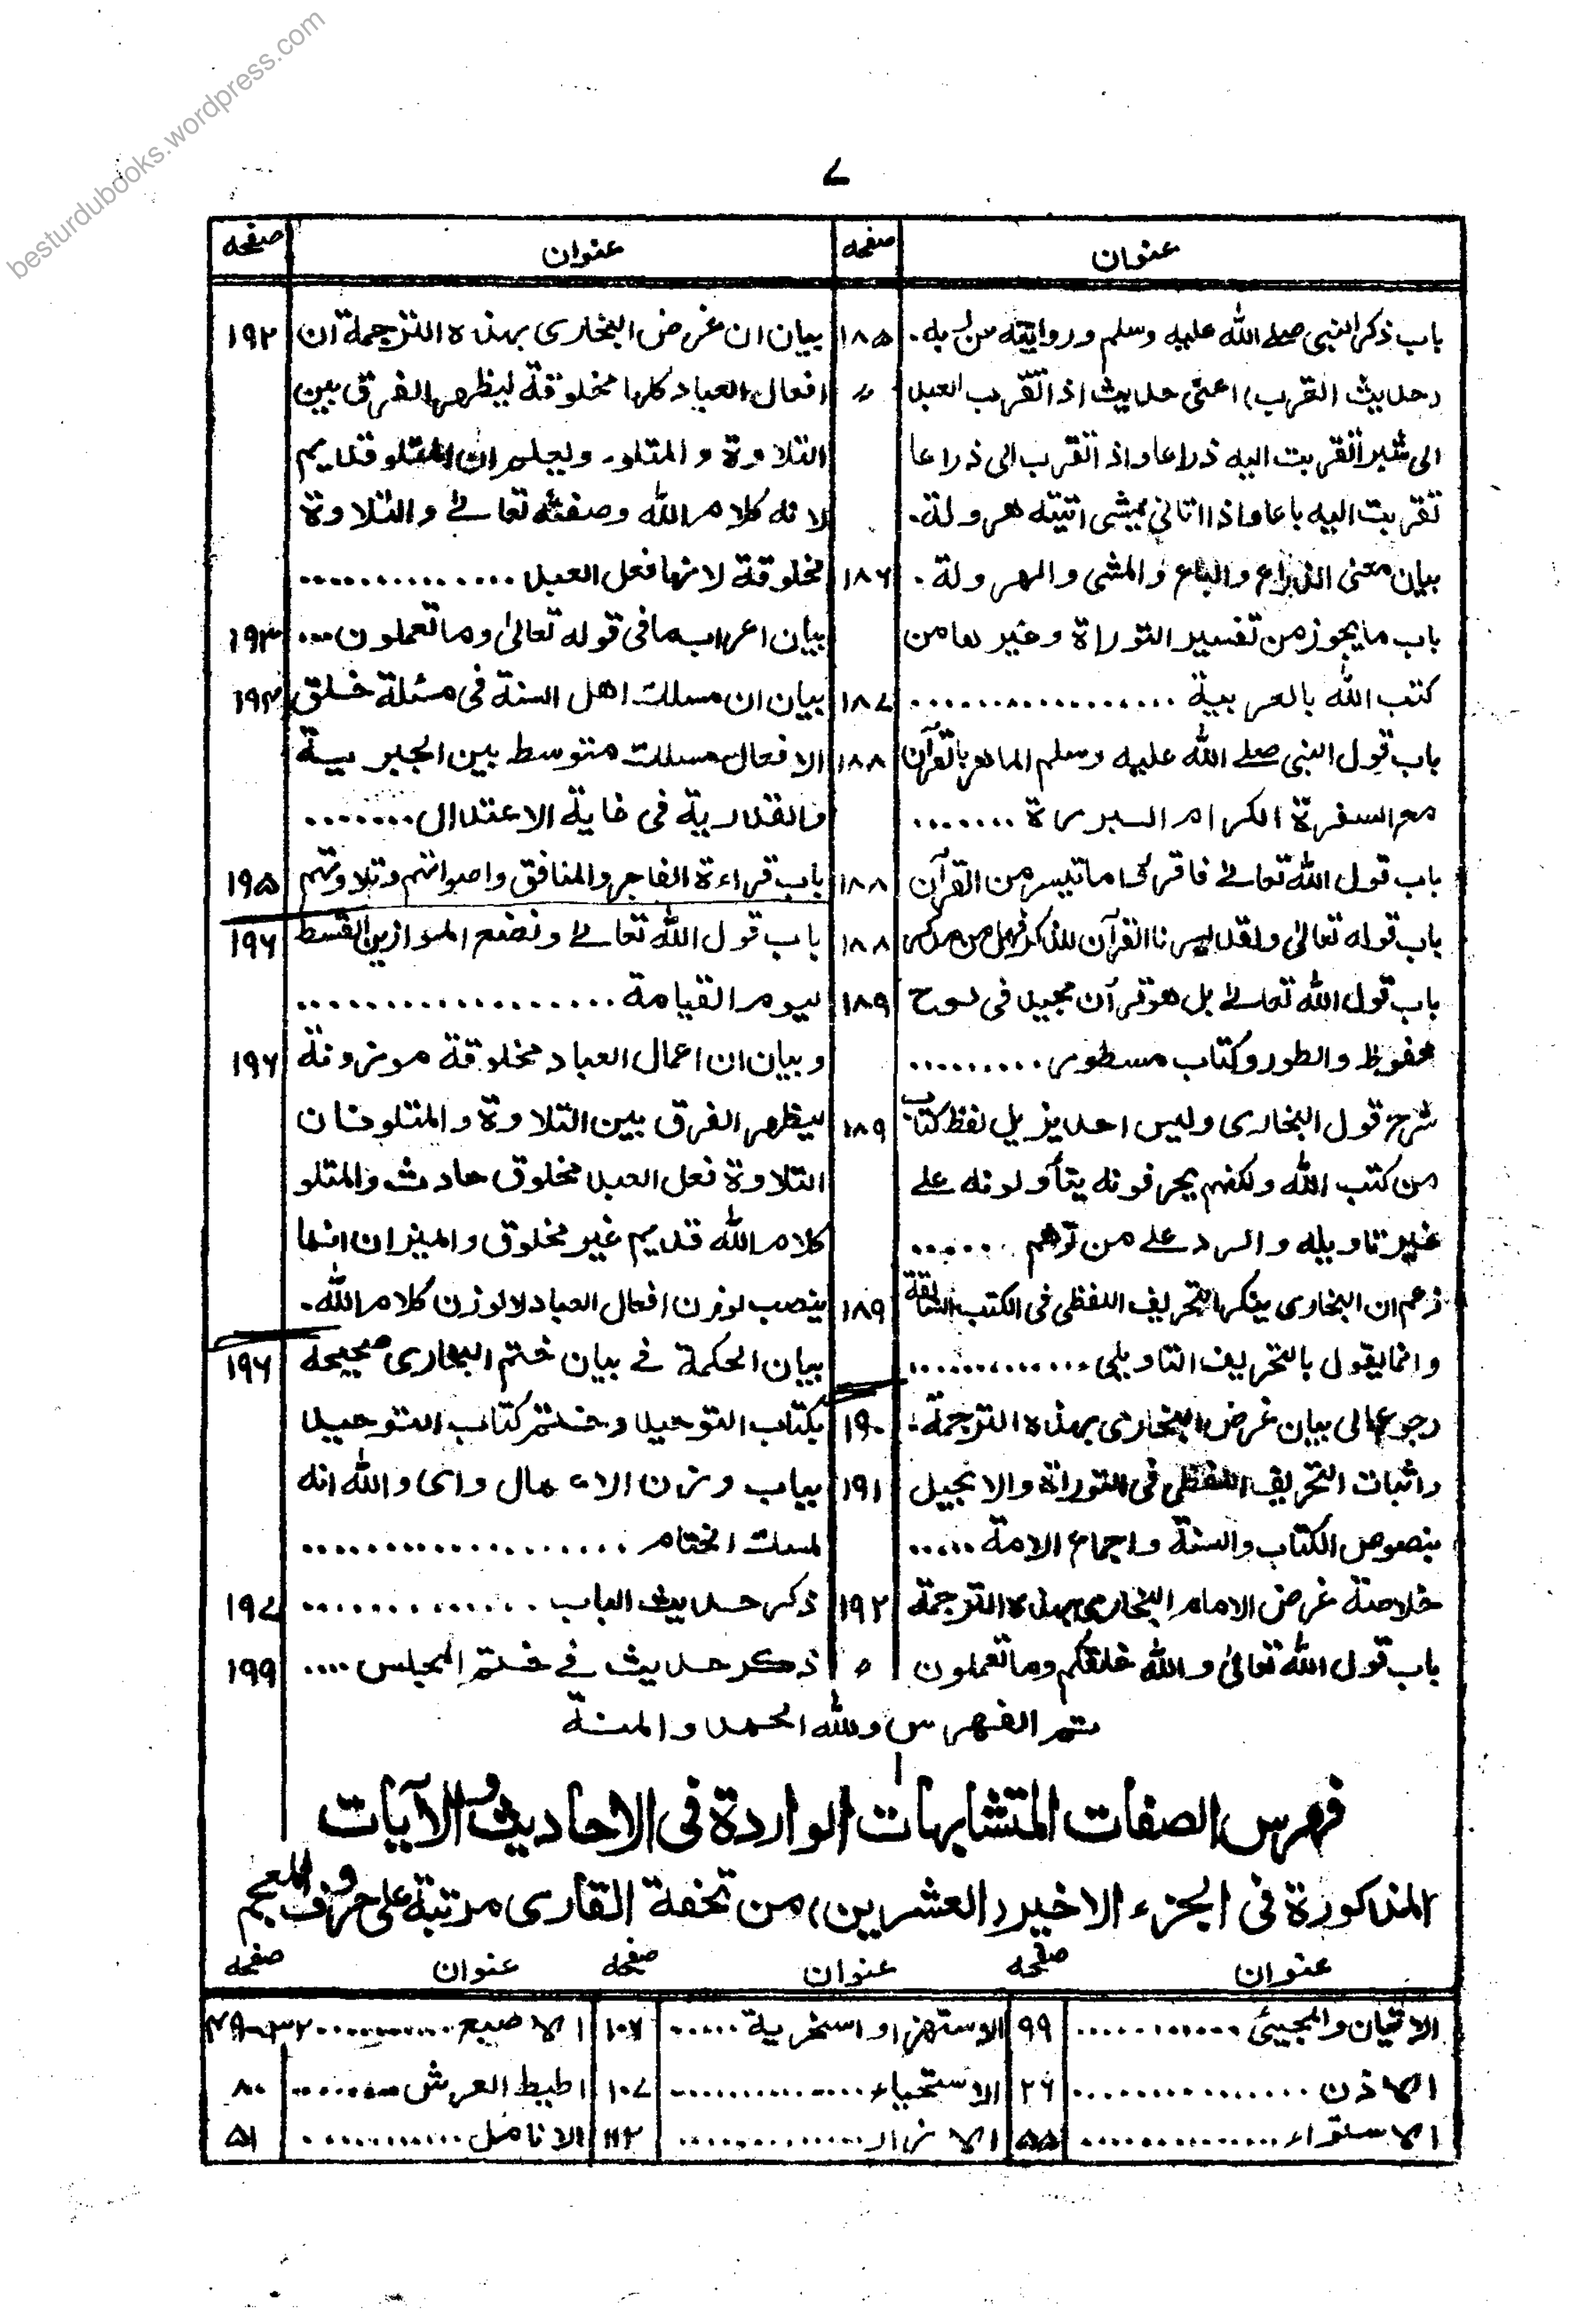 besturdubooks.wordpress.com
۷
عنوان صفحه
باب ذكر النبى صلى الله عليه وسلم وروايته عن ربه۔ ۱۸۵
(حديث القرب) اعنى حديث اذا تقرب العبد 〃
الى شبرا تقربت اليه ذراعا واذا تقرب الى ذراعا
تقربت اليه باعا واذا اتانى يمشى اتيته هرولة۔
بيان معنى الذراع والباع والمشى والهرولة ۔ ۱۸۶
باب ما يجوز من تفسير التوراة وغيرها من
كتب الله بالعربية .................. ۱۸۷
باب قول النبى صلے الله عليه وسلم الماهر بالقرآن ۱۸۸
مع السفرة الكرام البررة .......
باب قول الله تعالے فاقرءوا ما تيسر من القرآن ۱۸۸
باب قوله تعالىٰ ولقد يسرنا القرآن للذكر فهل من مدكر ۱۸۸
باب قول الله تعالے بل هو قرآن مجيد فى لوح ۱۸۹
محفوظ والطور وكتاب مسطور ..........
شرح قول البخارى وليس احد يزيل لفظ كتاب ۱۸۹
من كتب الله ولكنهم يحرفونه يتأولونه علے
غير تاويله والرد علے من توهم ......
زعم ان البخارى ينكر التحريف اللفظى فى الكتب السابقة ۱۸۹
وانما يقول بالتحريف التاويلى .............
رجوع الى بيان غرض البخارى بهذه الترجمة۔ ۱۹۰
واثبات التحريف اللفظى فى التوراة والانجيل ۱۹۱
بنصوص الكتاب والسنة واجماع الامة .....
خلاصة غرض الامام البخارى بهذه الترجمة ۱۹۲
باب قول الله تعالىٰ والله خلقكم وما تعملون 〃
عنوان صفحه
بيان ان غرض البخارى بهذه الترجمة ان ۱۹۲
افعال العباد كلها مخلوقة ليظهر الفرق بين
التلاوة والمتلو۔ وليعلم ان المتلو قديم
لانه كلام الله وصفته تعالے والتلاوة
مخلوقة لانها فعل العبد ..............
بيان اعراب ما فى قوله تعالىٰ وما تعملون ... ۱۹۳
بيان ان مسلك اهل السنة فى مسئلة خلق ۱۹۴
الافعال مسلك متوسط بين الجبرية
والقدرية فى غاية الاعتدال .......
باب قراءة الفاجر والمنافق واصواتهم وتلاوتهم ۱۹۵
باب قول الله تعالے ونضع الموازين القسط ۱۹۶
ليوم القيامة ...................
وبيان ان اعمال العباد مخلوقة موزونة ۱۹۶
ليظهر الفرق بين التلاوة والمتلو فان
التلاوة فعل العبد مخلوق حادث والمتلو
كلام الله قديم غير مخلوق والميزان انما
ينصب لوزن افعال العباد لا لوزن كلام الله۔
بيان الحكمة فے بيان ختم البخارى صحيحه ۱۹۶
بكتاب التوحيد وختم كتاب التوحيد
بباب وزن الاعمال واى والله انه
لمسك الختام ....................
ذكر حديث الباب .............. ۱۹۷
ذكر حديث فے ختم المجلس .... ۱۹۹
تم الفهرس ولله الحمد والمنة
فهرس الصفات المتشابهات الواردة فى الاحاديث والآيات
المذكورة فى الجزء الاخير (العشرين) من تحفة القارى مرتبة على حروف المعجم
عنوان صفحه عنوان صفحه عنوان صفحه
الاتيان والمجيئ ............ ۹۹ الاستهزا او السخرية ..... ۱۰۷ الاصبع ........... ۳۲-۴۹
الاذن ................ ۲۶ الاستحياء .............. ۱۰۷ اطيط العرش ........ ۸۰
الاستواء ............... ۵۵ الازار .............. ۱۱۲ الانامل ............ ۵۱